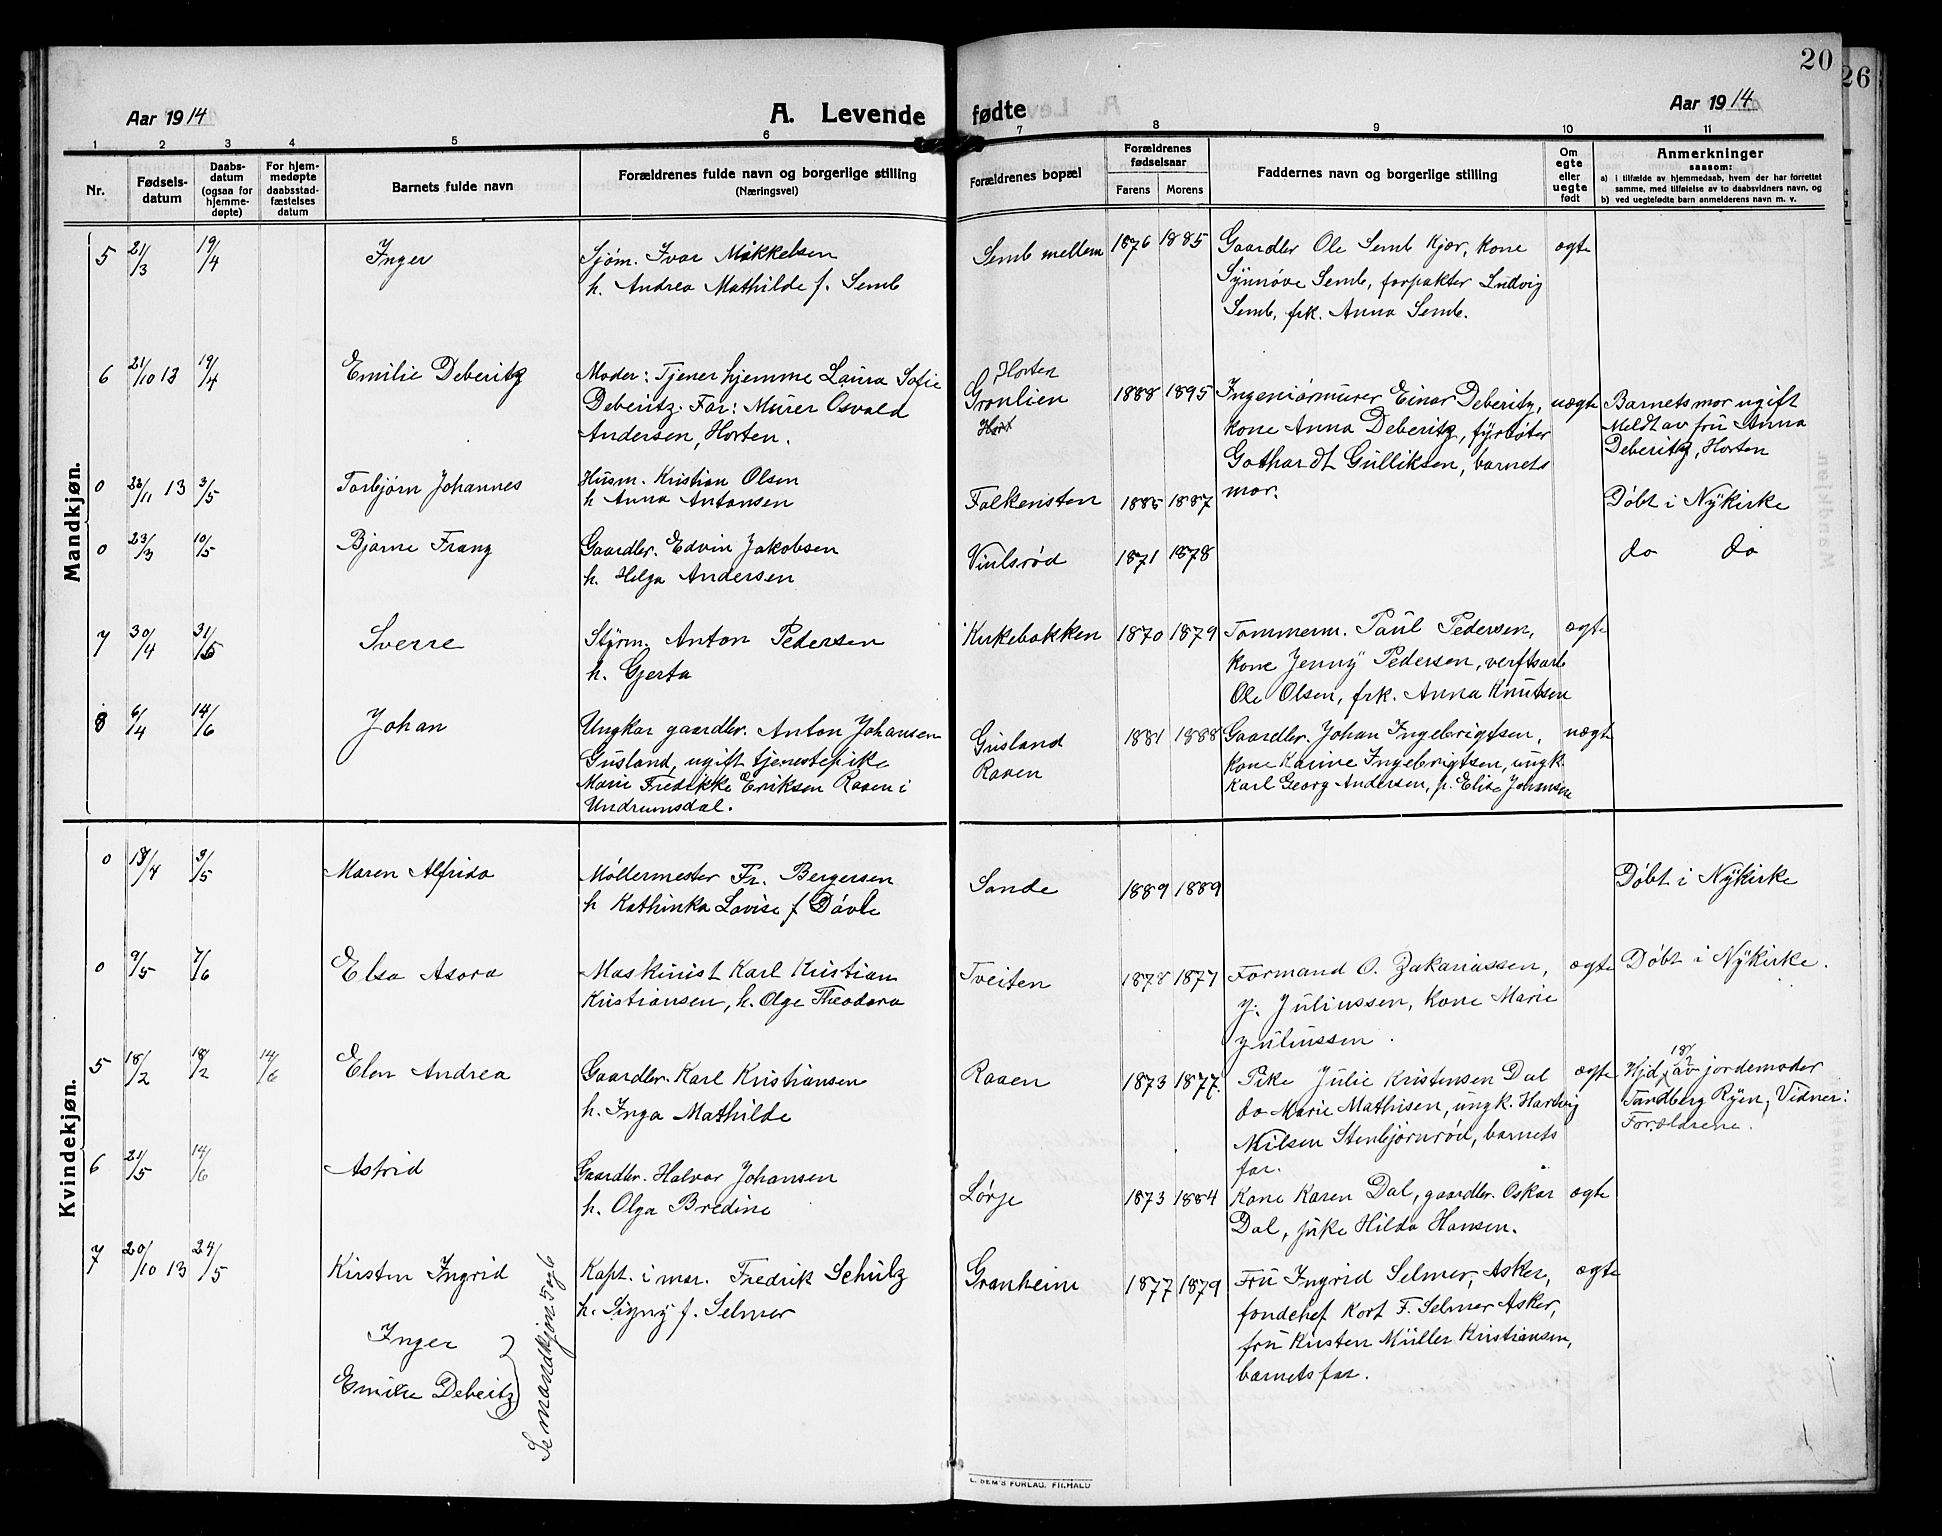 20
26
Aar 1914
A. Levende fødte
Aar 1914
1 2 3 4 5 6 7 8 9 10 11
Nr.
Fødsels-
datum
Daabs-
datum
(ogsaa for
hjemme-
døpte)
For hjem-
medøpte
daabsstad-
fæstelses
datum
Barnets fulde navn
Forældrenes fulde navn og borgerlige stilling
(Næringsvei)
Forældrenes bopæl
Forældrenes
fødselsaar
Farens
Morens
Faddernes navn og borgerlige stilling
Om
egte
eller
uegte
født
Anmerkninger
saasom:
a) i tilfælde av hjemmedaab, hvem der har forrettet
samme, med tilføielse av to daabsvidners navn, og
b) ved uegtefødte barn anmelderens navn m. v.
Mandkjøn.
5 21/3 19/4 Inger
Sjøm. Ivar Mikkelsen
h. Andrea Mathilde f. Semb
Semb mellem 1876 1885
Gaardbr Ole Semb Kjær, kone
Synnøve Semb, forpakter Ludvig
Semb, frk. Anna Semb.
ægte
6 21/10 13 19/4 Emilie Deberitz
Moder: Tjener hjemme Laura Sofie
Deberitz. Far: Murer Osvald
Andersen, Horten.
Horten
Grønlien
Hort
1888 1895
Ingeniørmurer Einar Deberitz,
kone Anna Deberitz, fyrbøter
Gothardt Gulliksen, barnets
mor.
uægte
Barnets mor ugift
Meldt av fru Anna
Deberitz, Horten
0 23/11 13 3/5 Torbjørn Johannes
Husm. Kristian Olsen
h Anna Antonsen
Falkensten 1885 1887
Døbt i Nykirke
0 23/3 10/5 Bjarne Franz
Gaardbr. Edvin Jakobsen
h. Helga Andersen
Viulsrød 1871 1878
do do
7 30/4 31/5 Sverre
Styrm. Anton Pedersen
h. Gjerta
Kirkebakken 1870 1879
Tømmerm. Paul Pedersen,
kone Jenny Pedersen, verftsarb
Ole Olsen, frk. Anna Knutsen
ægte
8 6/4 14/6 Johan
Ungkar gaardbr. Anton Johansen
Gusland, ugift tjenestepike
Marie Fredikke Eriksen Raaen i
Undrumsdal.
Gusland
Raaen
1881 1888
Gaardbr. Johan Ingebrigtsen,
kone Karine Ingebrigtsen, ungk.
Karl Georg Andersen, p. Elise Johansen
uægt
Kvindekjøn.
0 18/4 9/5 Maren Alfrida
Møllermester Fr. Bergersen
h Kathinka Lovise f Døvle
Sande 1889 1889
Døbt i Nykirke
0 9/5 7/6 Elsa Asora
Maskinist Karl Kristian
Kristiansen, h. Olga Theodora
Tveiten 1878 1877
Formand O. Zakariassen,
J. Juliussen, kone Marie
Juliussen.
ægte
Døbt i Nykirke.
5 18/2 18/2 14/6 Elen Andrea
Gaardbr. Karl Kristiansen
h. Inga Mathilde
Raaen 1873 1877.
Pike Julie Kristensen Dal
do Marie Mathisen, ungk. Hartvig
Nilsen Stenbjørnrød, barnets
far.
ægte
18/2
Hjd. av jordemoder
Tandberg Ryen, Vidner:
Forældrene.
6 21/5 14/6 Astrid
Gaardbr. Halvor Johansen
h. Olga Bredine
Lørje 1873 1884
Kone Karen Dal, gaardbr. Oskar
Dal, pike Hilda Hansen.
ægte
7 20/10 13 24/5 Kirsten Ingrid
Kapt. i mar. Fredrik Schulz
h. Signy f. Selmer
Granheim 1877 1879
Fru Ingrid Selmer, Asker,
fondchef Kort F. Selmer Asker,
fru Kirsten Müller Kristiansen,
barnets far.
ægte
Inger
Emilie Deberitz
Se mandkjøn 5 og 6
E. SEM'S FORLAG. FR.HALD